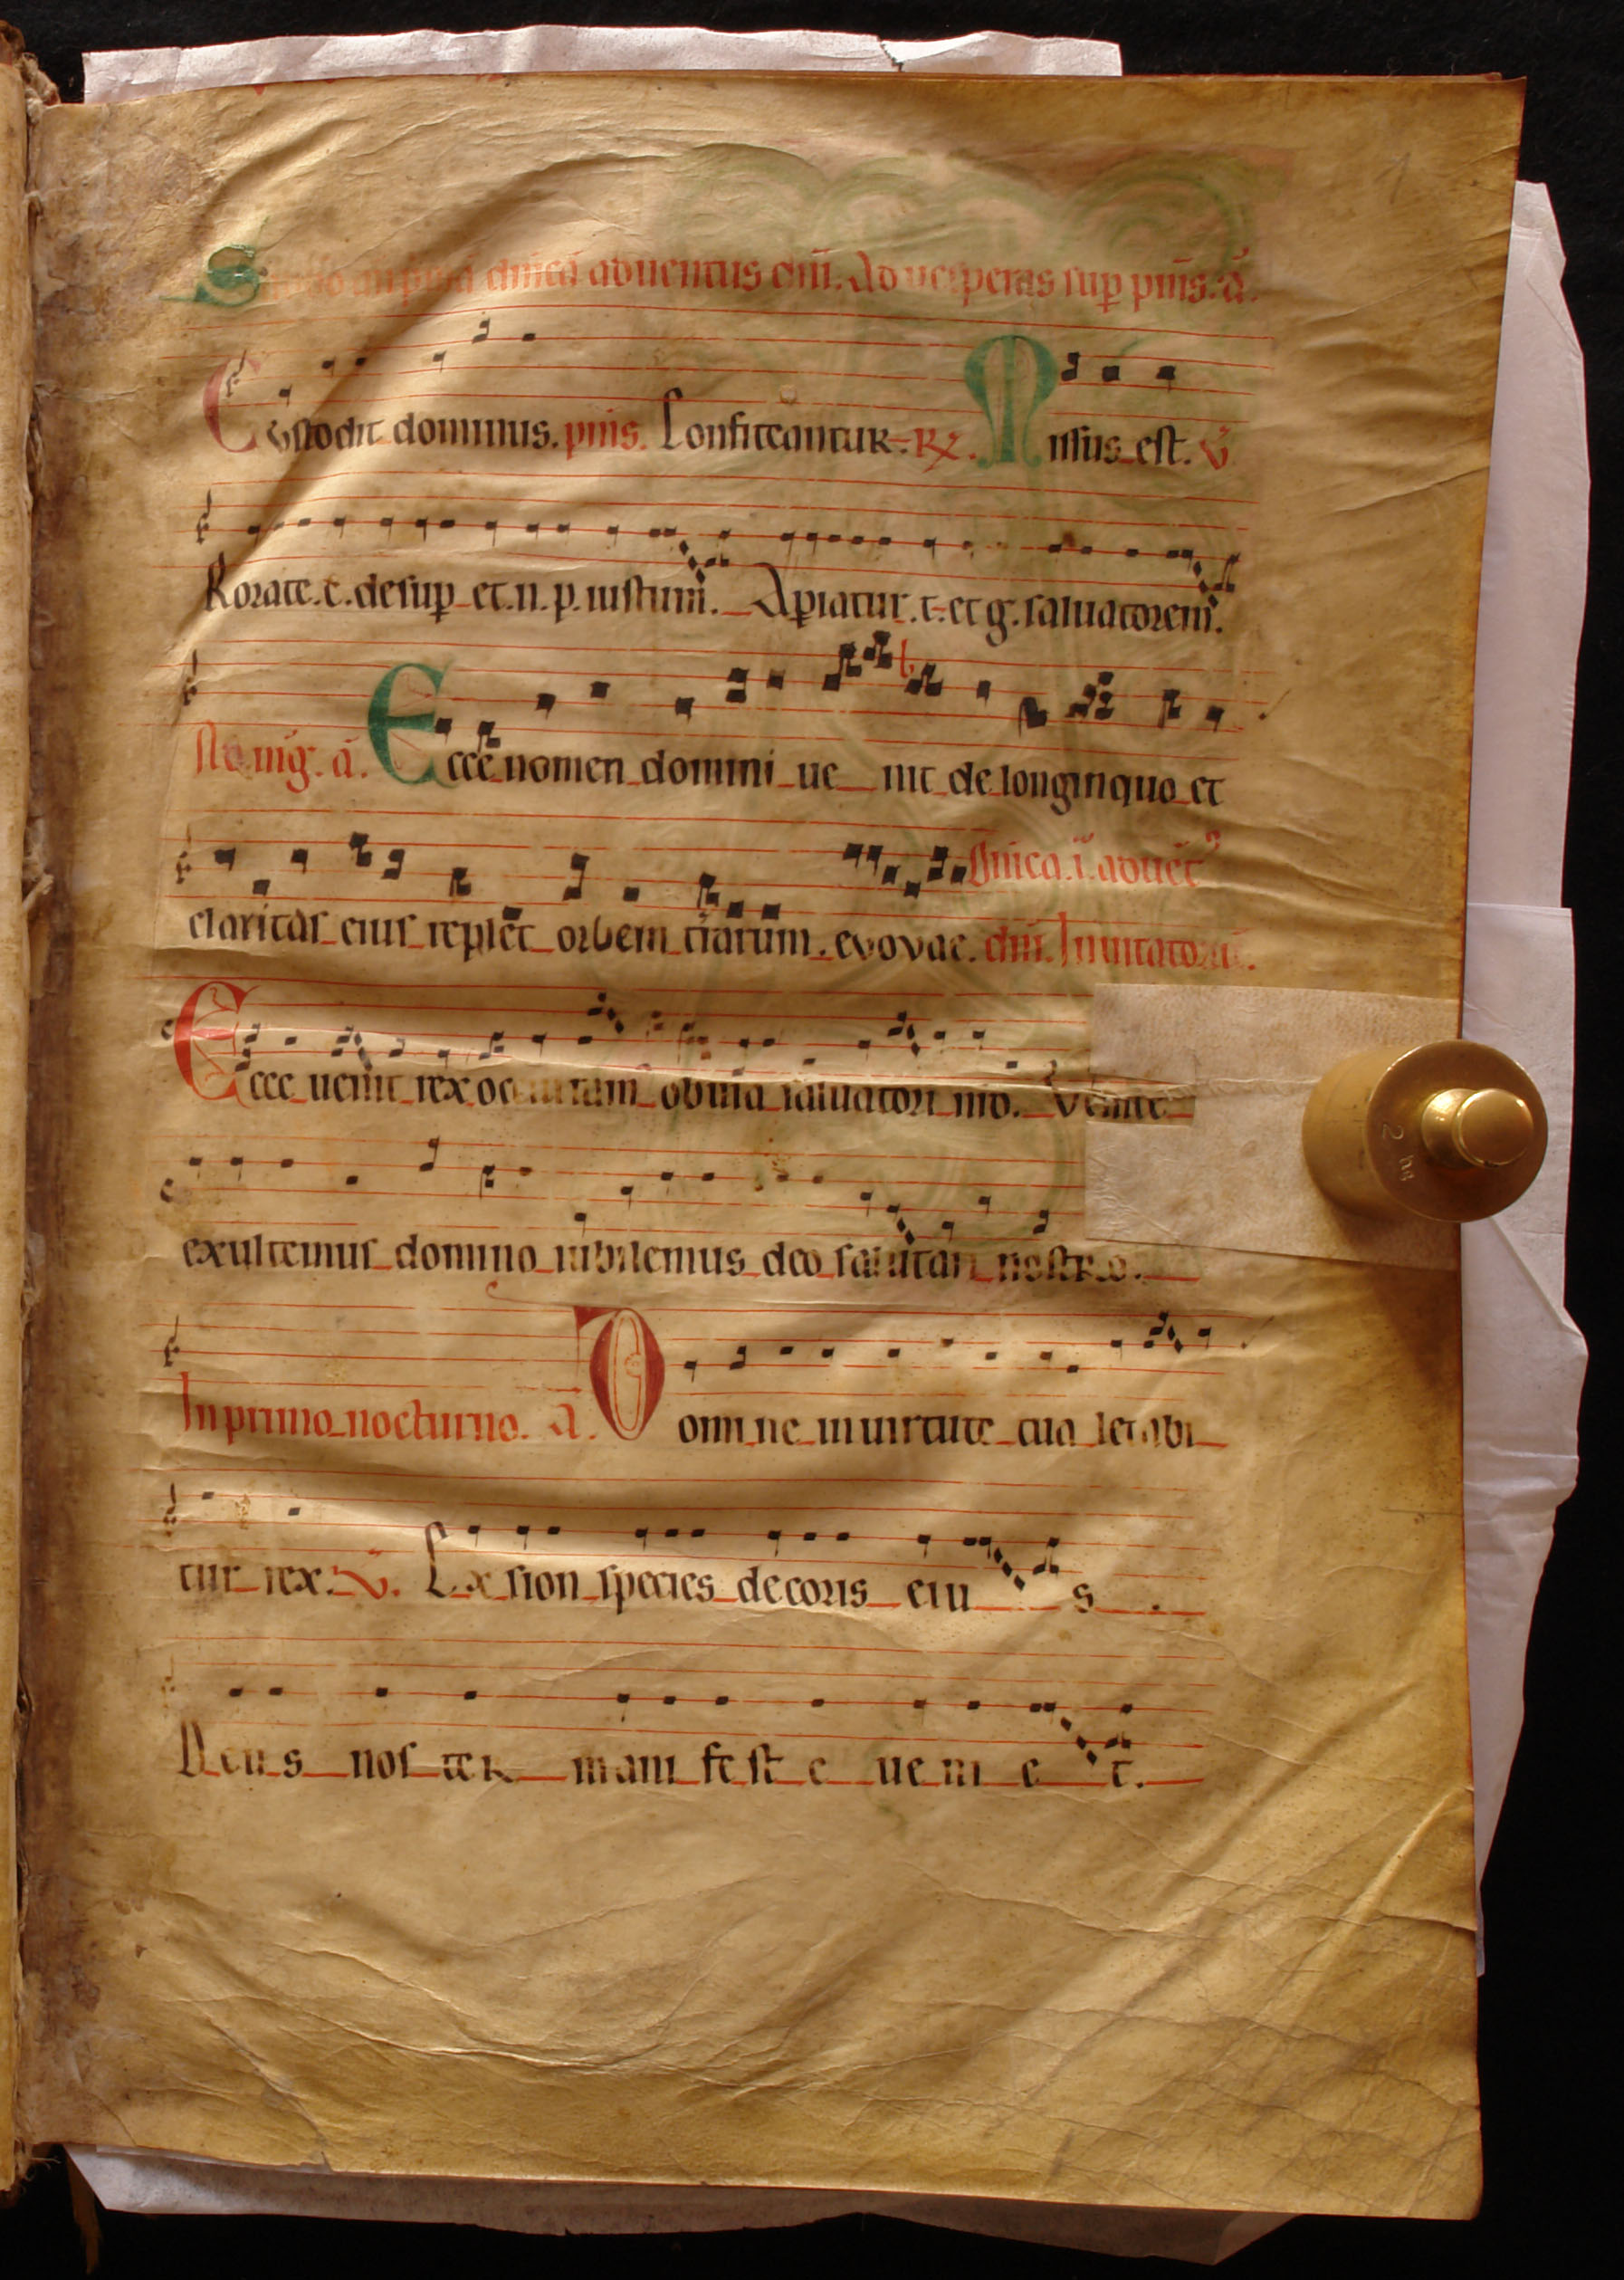 Sabbato ante primā dnicā aduentus dnī. Ad uesperas sup psms. ā.
Custodit dominus. psms. Confiteantur. R̷. Missus est. v̄
Rorate. c. desup et. n. p. iustum. Apiatur. t. et g. saluatorem.
Ad mg̃. ā. Ecce nomen domini ue nit de longinquo et
claritas eius replet orbem t̄rarum. evovae. Dnica. i. aduēt⁹
dnī. Inuitatoriū.
Ecce uenit rex occurram obuia saluatori nrō. Venite
exultemus domino iubilemus deo salutari nostro.
In primo nocturno. ā. Domine in uirtute tua letabi
tur rex. v̄. Ex sion species decoris eiu s.
Deus nos ter mani fest e ue ni e t.
1
2 hg